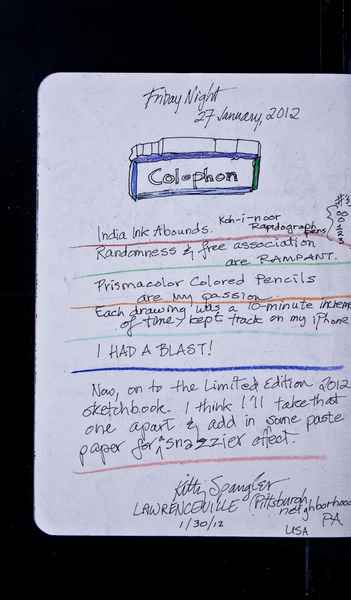 Friday Night
27 January, 2012
Colophon
India Ink Abounds. Koh-i-noor
Rapidograph pens
#'s
00
0
1
2
3
Randomness & free association
are RAMPANT.
Prismacolor Colored Pencils
are my passion.
Each drawing was a 10-minute increme
of time, kept track on my iphone
I HAD A BLAST!
Now, on to the Limited Edition 2012
sketchbook. I think I'll take that
one apart & add in some paste
paper for a snazzier effect.
Kitty Spangler
LAWRENCEVILLE (Pittsburgh
neighborhood
PA
1/30/12
USA